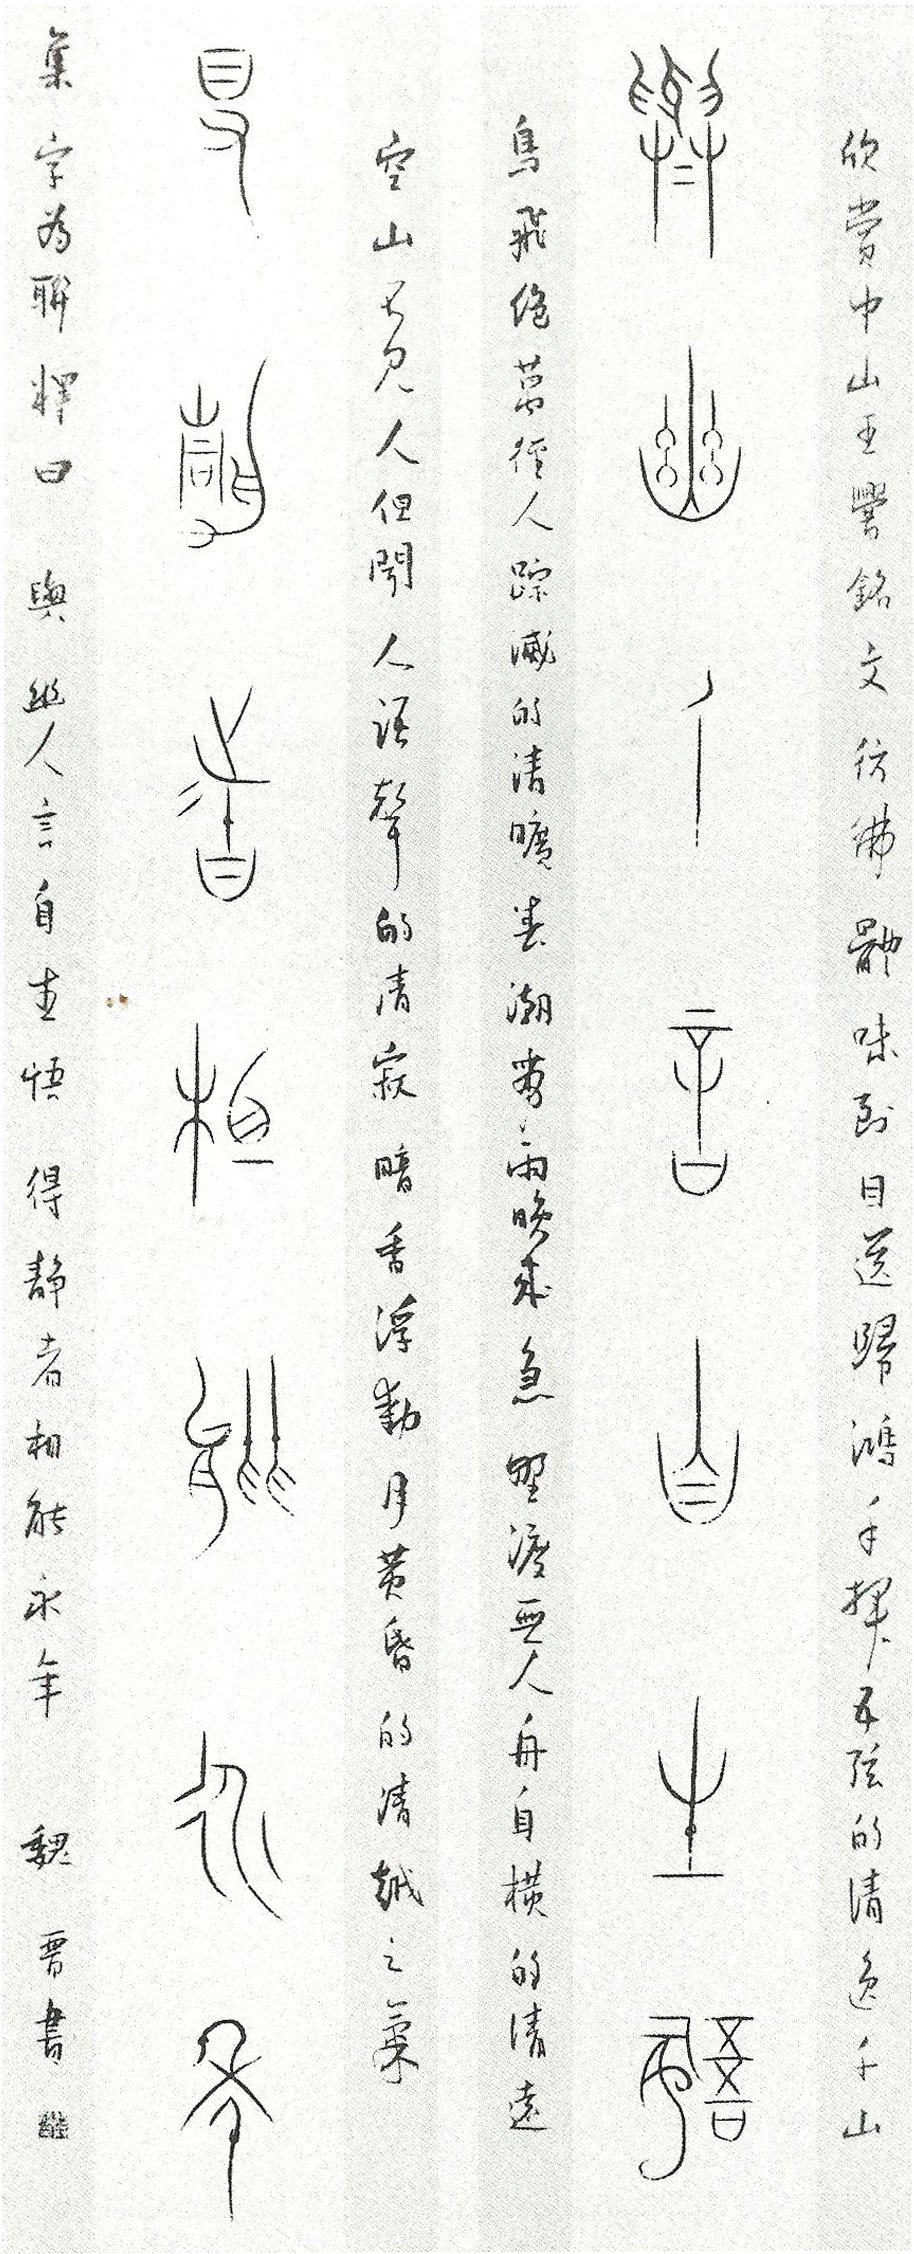 欣賞中山王銘文彷彿體味到目送歸鴻手揮五弦的清逸千山
與幽人言自生悟
鳥飛絕萬徑人踪滅的清曠春潮帶雨晚來急野渡無人舟自橫的清遠
空山不見人但聞人語聲的清寂暗香浮動月黃昏的清越之氣
得靜者相能永年
集字為聯釋曰 與幽人言自生悟 得靜者相能永年 魏晉書